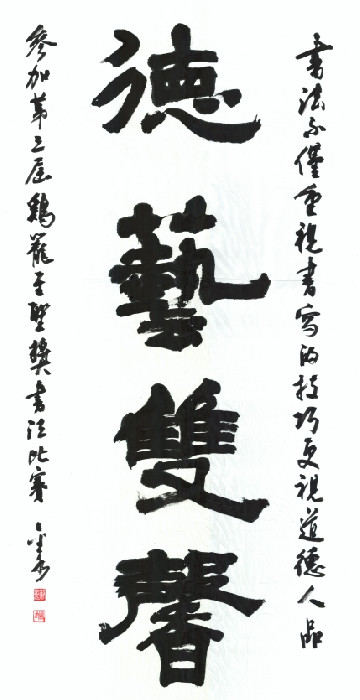 書法不僅重視書寫的技巧更視道德人品
德藝雙馨
參加第三屆鷄籠至聖獎書法比賽